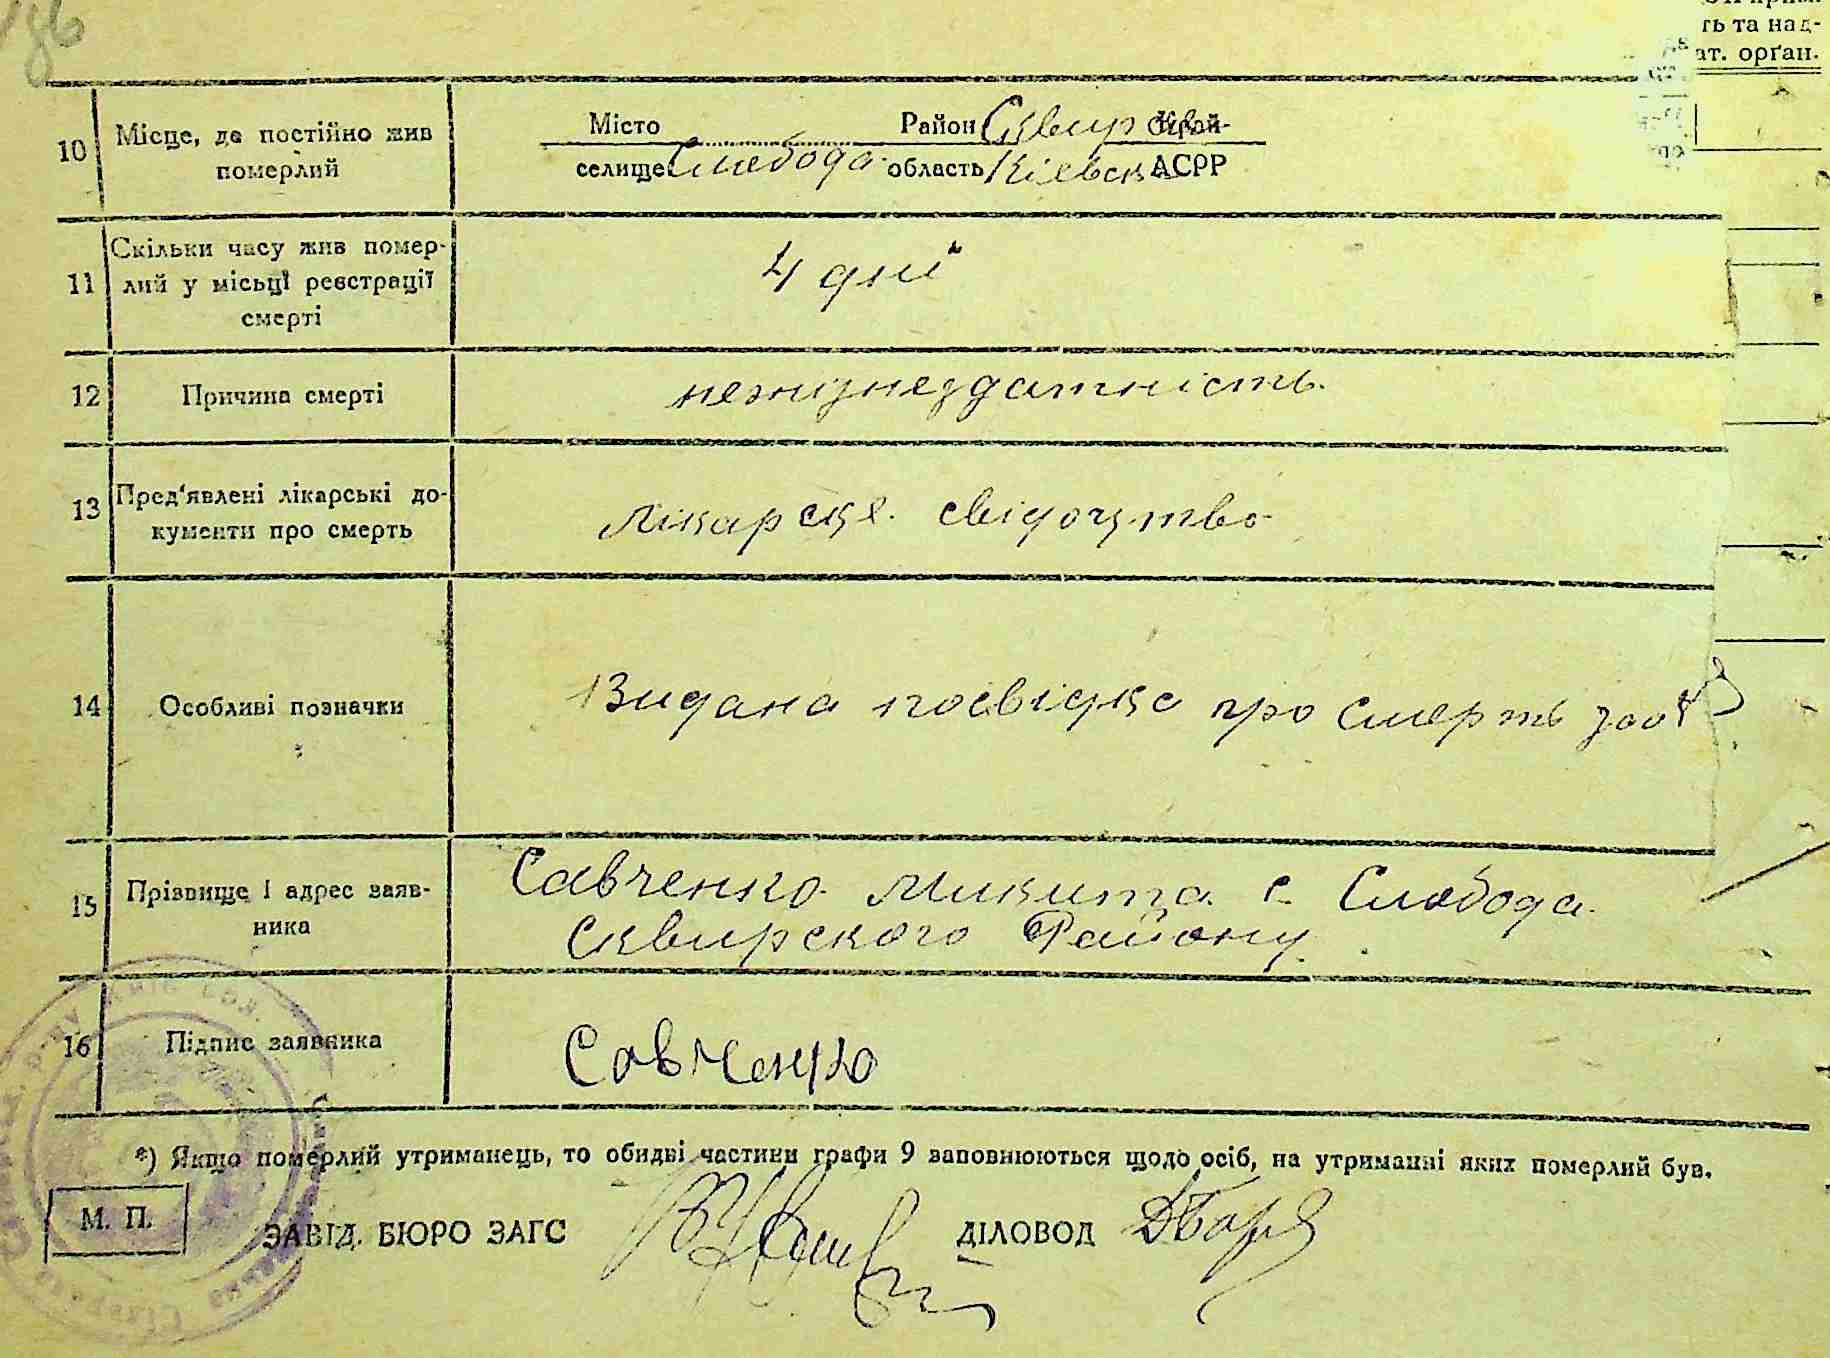 ть та над-
ат. орґан.
10 Місце, де постійно жив померлий
Місто Район Сквир Край-
селище Слобода область Кіевск АСРР
11 Скільки часу жив помер-
лий у місьці реєстрації
смерті
4 дні
12 Причина смерті
нежизнездатність
13 Пред'явлені лікарські до-
кументи про смерть
лікарске свідоцтво
14 Особливі позначки
Видана посвідка про смерть
15 Прізвище і адрес заяв-
ника
Савченко Микита с Слобода
Сквирского Району
16 Підпис заявника
Савченко
*) Якщо померлий утриманець, то обидві частини графи 9 заповнюються щодо осіб, на утриманні яких померлий був.
М. П.
ЗАВІД. БЮРО ЗАГС ДІЛОВОД